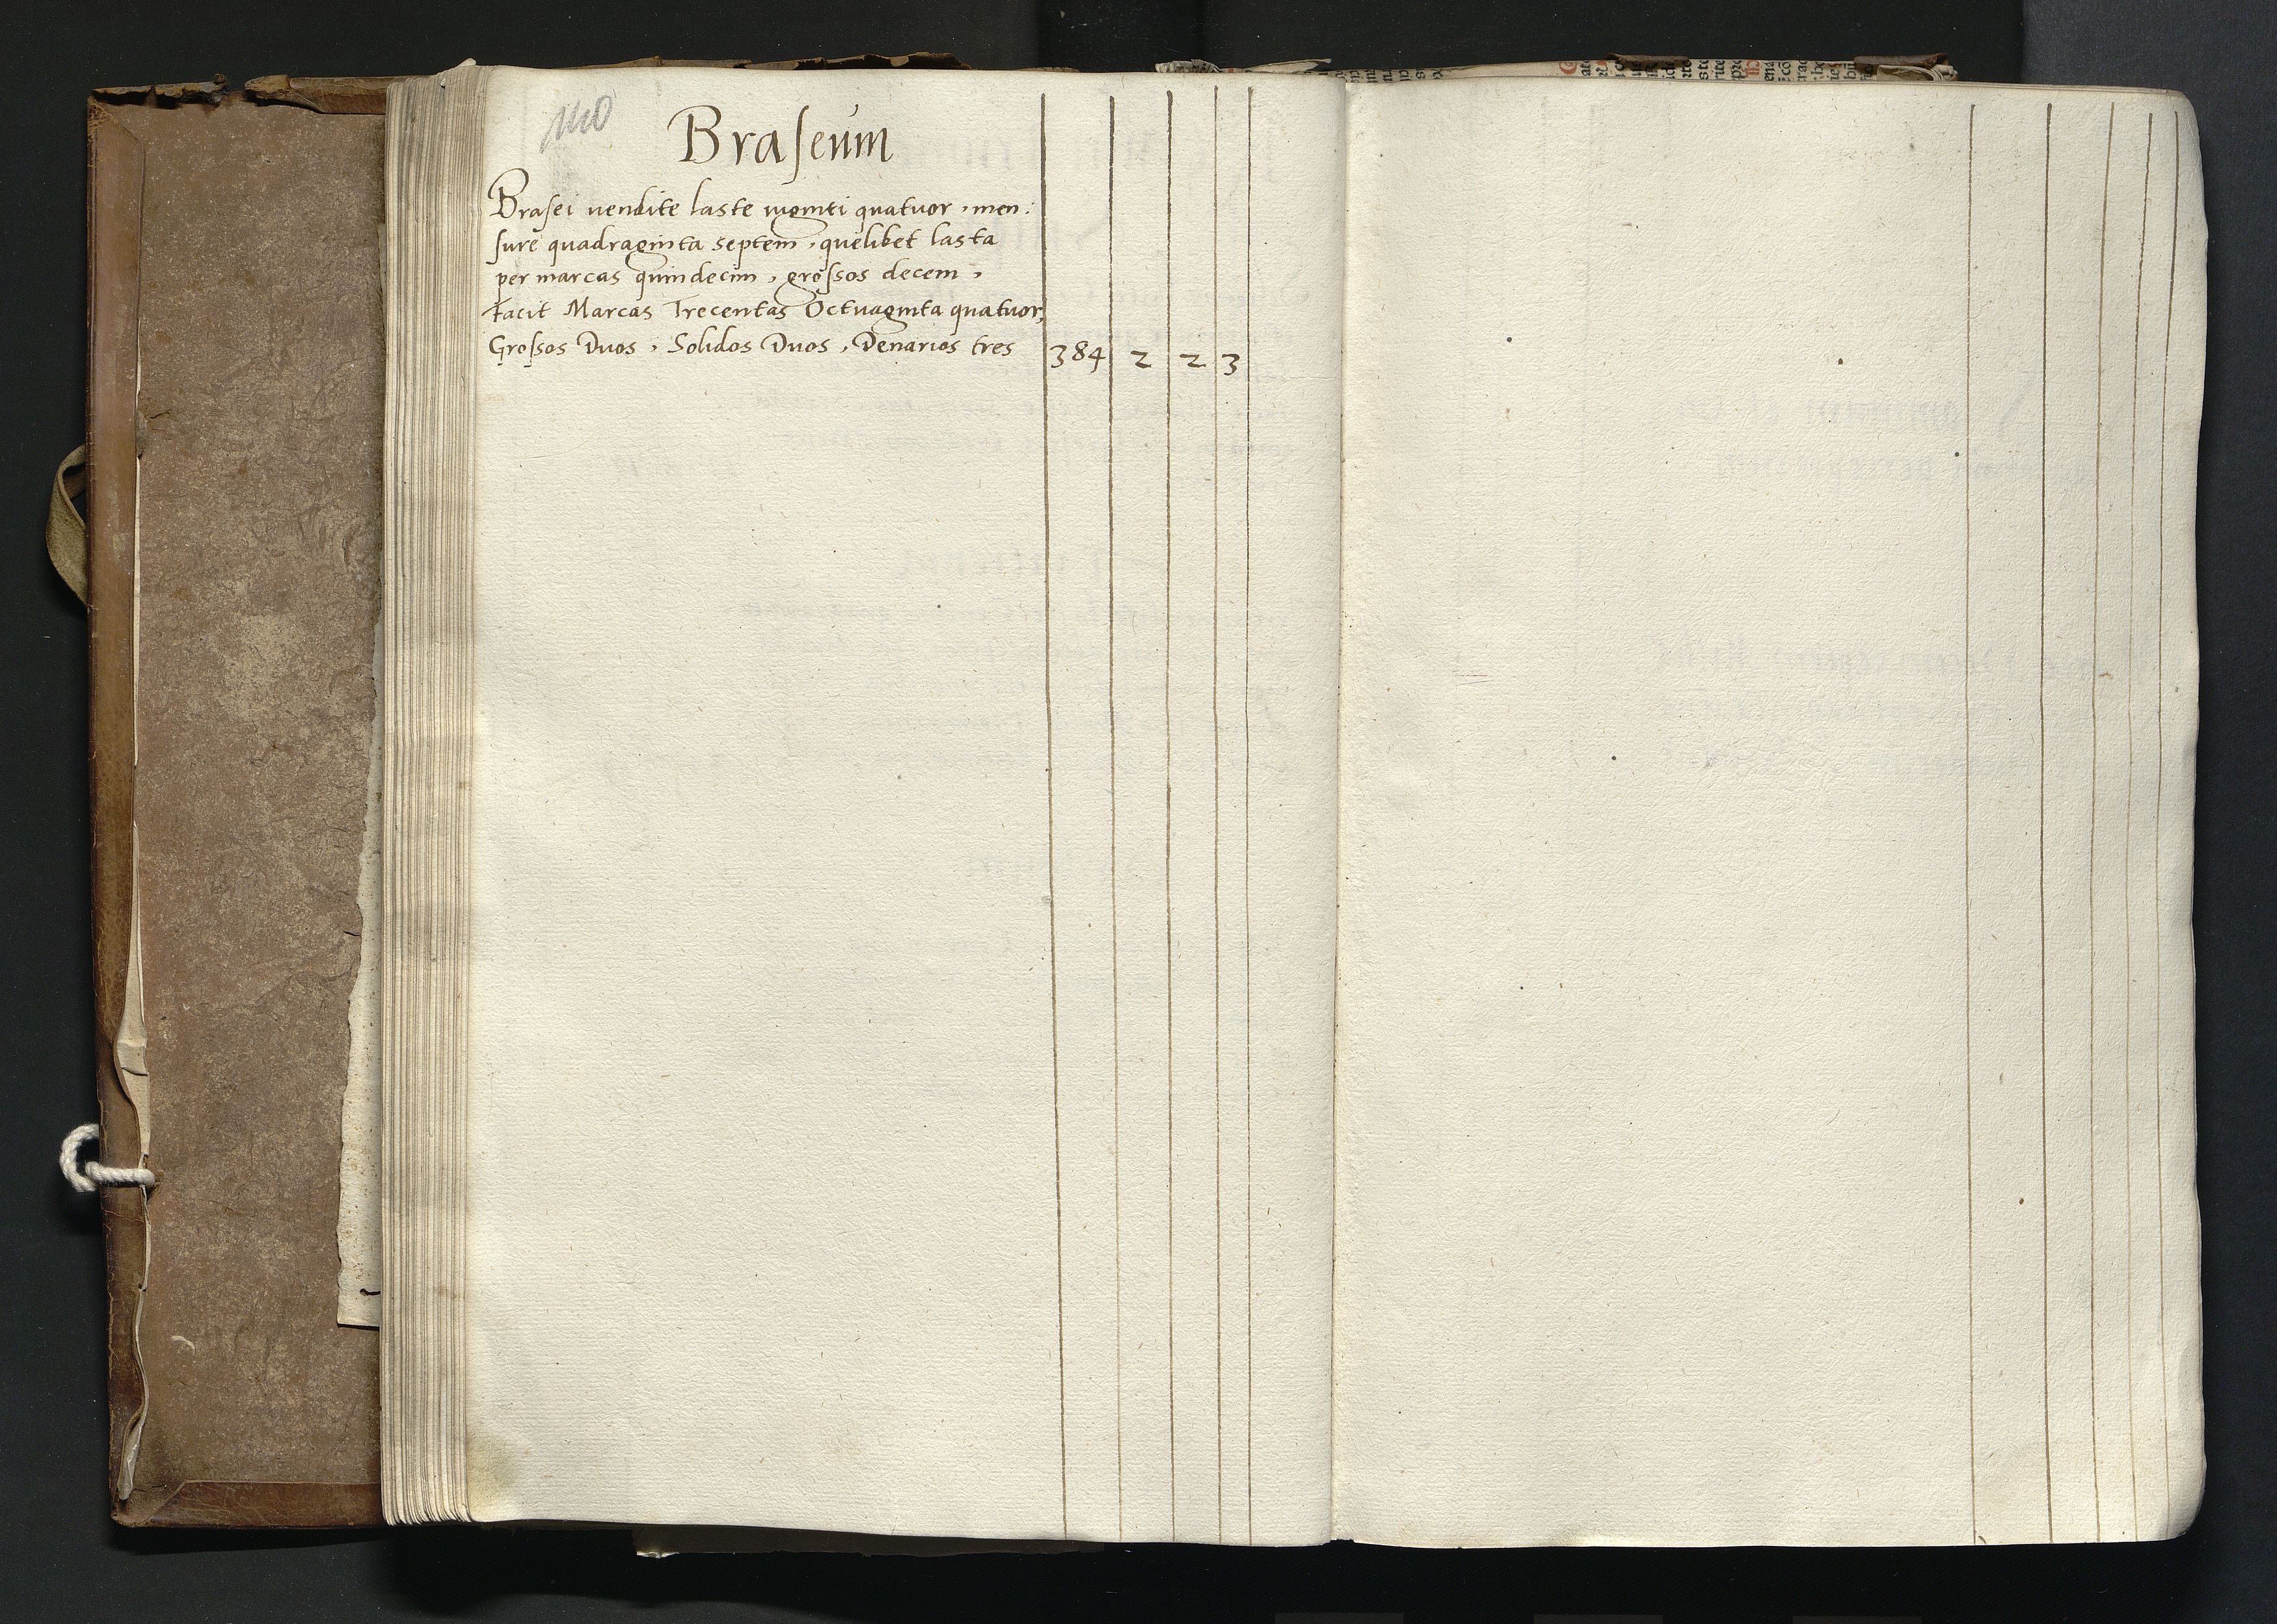 110
Braſeum
Braſei uendite laste uiginti quatuor, men:
ſure quadraginta septem, quelibet lasta
per marcas quindecim, groſsos decem,
Facit Marcas Trecentas Octuaginta quatuor,
Groſsos Duos, Solidos Duos, Denarios tres 384 2 2 3